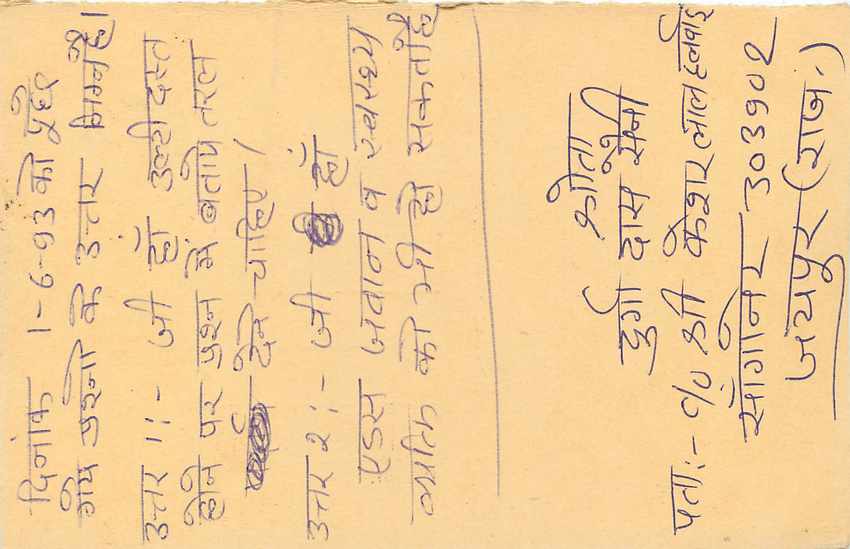 दिनांक 1-6-93 को पुछे
गये प्रश्नो के उत्तर निम्न है।
उत्तर 1:- जी हाँ उल्टी दस्त
होने पर प्रश्न में बताये तरल
देने चाहिए।
उत्तर 2:- जी हाँ
एडस जवान व स्वस्थ्य
व्यक्ति को भी हो सकता है
श्रोता
दुर्गा दास सैनी
पता:- c/o श्री केशर लाल हलवाई
सांगानेर 303902
जयपुर (राज.)